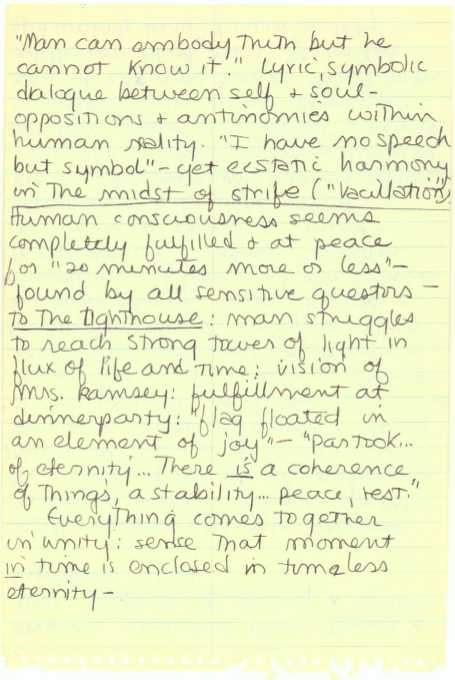 "Man can embody Truth but he
cannot know it." Lyric, symbolic
dialogue between self & soul -
oppositions & antinomies within
human reality. "I have no speech
but symbol" - yet ecstatic harmony
in The midst of strife ("Vacillation")
Human consciousness seems
completely fulfilled & at peace
for "20 minutes more or less" -
found by all sensitive questors -
To The Lighthouse: man struggles
to reach strong tower of light in
flux of life and Time; vision of
Mrs. Ramsey: fulfillment at
dinnerparty: "flag floated in
an element of joy" - "partook...
of eternity... There is a coherence
of Things, a stability... peace, rest."
Everything comes together
in unity: sense That moment
in time is enclosed in timeless
eternity -